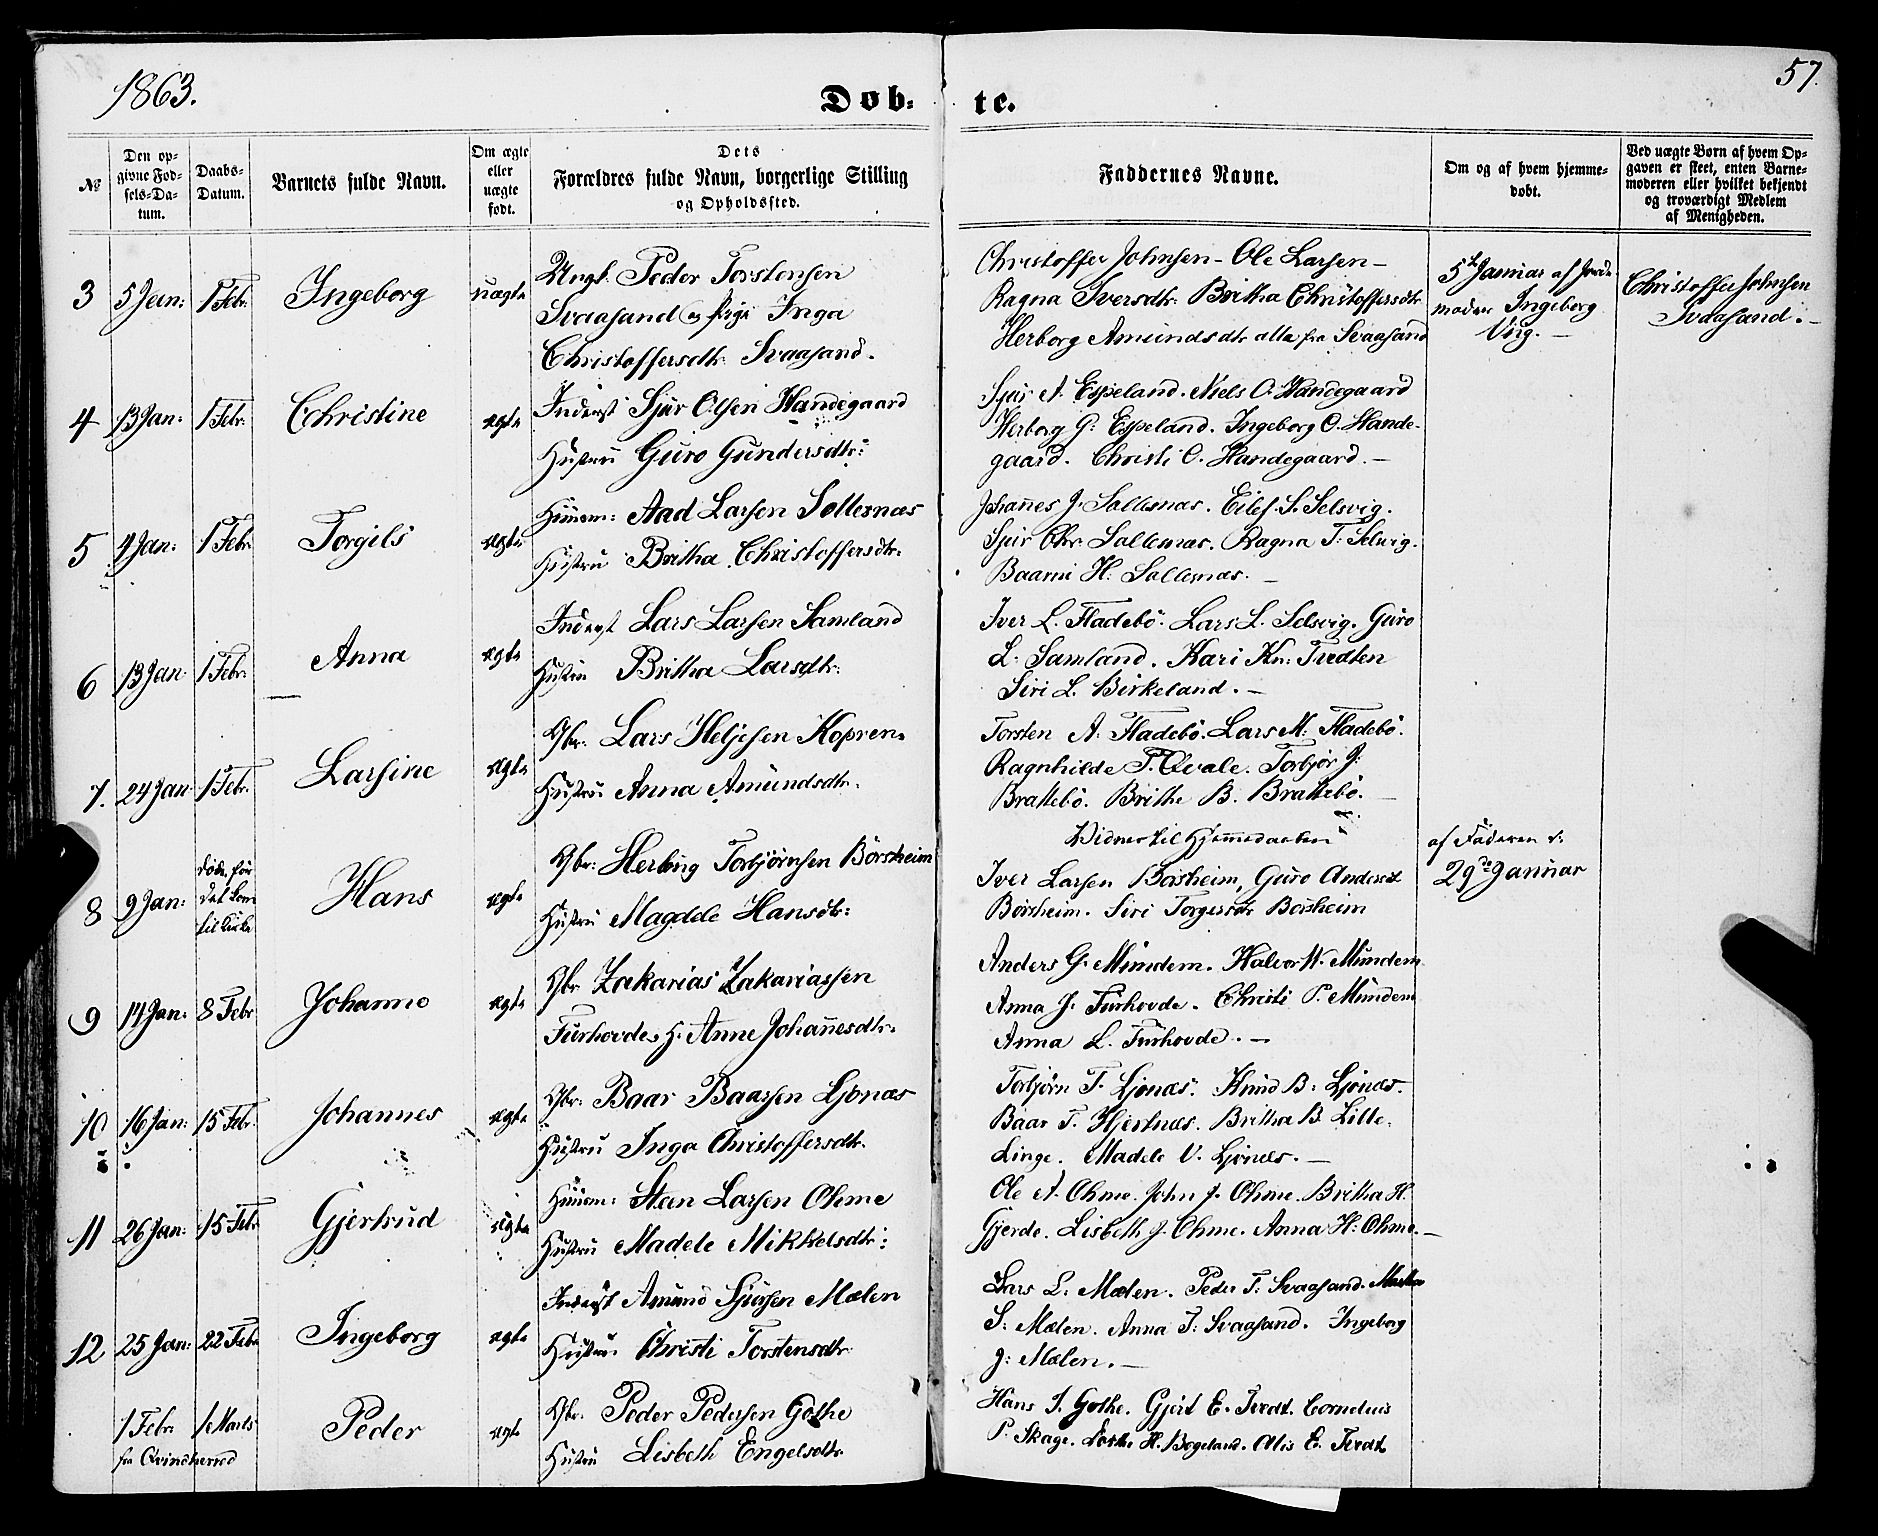 1863.
57.
Døb-
te.
№
Den op-
givne Fød-
sels-Da-
tum.
Daabs-
Datum.
Barnets fulde Navn.
Om ægte
eller
uægte
født.
Dets
Forældres fulde Navn, borgerlige Stilling
og Opholdssted.
Faddernes Navne.
Om og af hvem hjemme-
døbt.
Ved uægte Børn af hvem Op-
gaven er skeet, enten Barne-
moderen eller hvilket bekjendt
og troværdigt Medlem
af Menigheden.
3 5 Jan: 1 Febr. Ingeborg uægte
Ungk. Peder Torstensen
Svaasand og Pige Inga
Christoffersdtr. Svaasand.
Christoffer Johnsen - Ole Larsen -
Ragna Iversdtr. Britha Christoffersdtr
Herborg Amundsdtr alle fra Svaasand
5te Januar af Jorde-
moder Ingeborg
Viig. -
Christoffer Johnsen
Svaasand. -
4 13 Jan: 1 Febr. Christine ægte
Inderst Sjur Olsen Handegaard
Hustru Guro Gundersdtr:
Sjur A. Espeland. Niels O. Handegaard
Herborg G. Espeland. Ingeborg O. Hande-
gaard. Christi O. Handegaard. -
5 4 Jan: 1 Febr Torgils ægte
Huusm: Aad Larsen Sollesnæs
Hustru Britha Christoffersdtr.
Johannes J. Sollesnæs. Eilef S. Selsvig.
Sjur Chr. Sollesnæs. Ragna T. Selsvig.
H. Sollesnæs. -
6 13 Jan 1 Febr. Anna ægte
Inderst Lars Larsen Samland
Hustru Britha Larsdtr.
Iver L. Fladebö. Lars L. Selsvig. Guro
L. Samland. Kari Kn. Tvedten
Siri L. Birkeland. -
7. 24 Jan 1 Febr. Larsine ægte
Gbr: Lars Heljesen Kopren.
Hustru Anna Amundsdtr.
Torsten A. Fladebö. Lars M. Fladebö.
Ragnhilde T. Qvale. Torbjör J.
Brattebö. Brithe B. Brattebö. -
8 9 Jan: döde før
det kom
til Kirke Hans ægte
Gbr: Herbrig Torbjörnsen Börsheim
Hustru Magdele Hansdtr:
Vidner til Hjemmedaaben
Iver Larsen Börsheim, Guro Andersd
Börsheim. Siri Torgersdtr Börsheim
af Faderen d:
29de Januar
9 14 Jan: 8 Febr Johanne ægte
Gbr Zakarias Zakariassen
Furhovde, H. Anne Johannesdtr.
Anders G. Mundem. Halvor W. Mundem
Anna J. Furhovde. Christi P. Mundem
Anna L. Furhovde. -
10 16 Jan: 15 Febr. Johannes ægte
Gbr: Baar Baarsen Ljonæs
Hustru Inga Christoffersdtr.
Torbjörn T. Ljonæs. Knud B. Ljönæs.
Baar T. Hjertnæs. Britha B. Lille-
Linge. Madele V. Ljönæs. -
11 26 Jan: 15 Febr Gjertrud ægte
Huusm: Steen Larsen Ohme
Hustru Madele Mikkelsdtr:
Ole A. Ohme. John J. Ohme. Britha H.
Gjerde. Lisbeth J. Ohme. Anna H. Ohme. -
12 25 Jan: 22 Febr Ingeborg ægte
Inderst Amund Sjursen Mælen
Hustru Christi Torstensdtr
Lars L. Mælen. Peder T. Svaasand. Martha
S. Mælen. Anna T. Svaasand. Ingeborg
J. Mælen. -
1 Febr 1 Marts Peder ægte
fra Qvindherred
Gbr. Peder Pedersen Gothe
Hustru Lisbeth Engelsdtr
Hans J. Gothe. Gjert E. Tvedt. Cornelius
P. Skage. H. Bogeland. Alis E. Tvedt